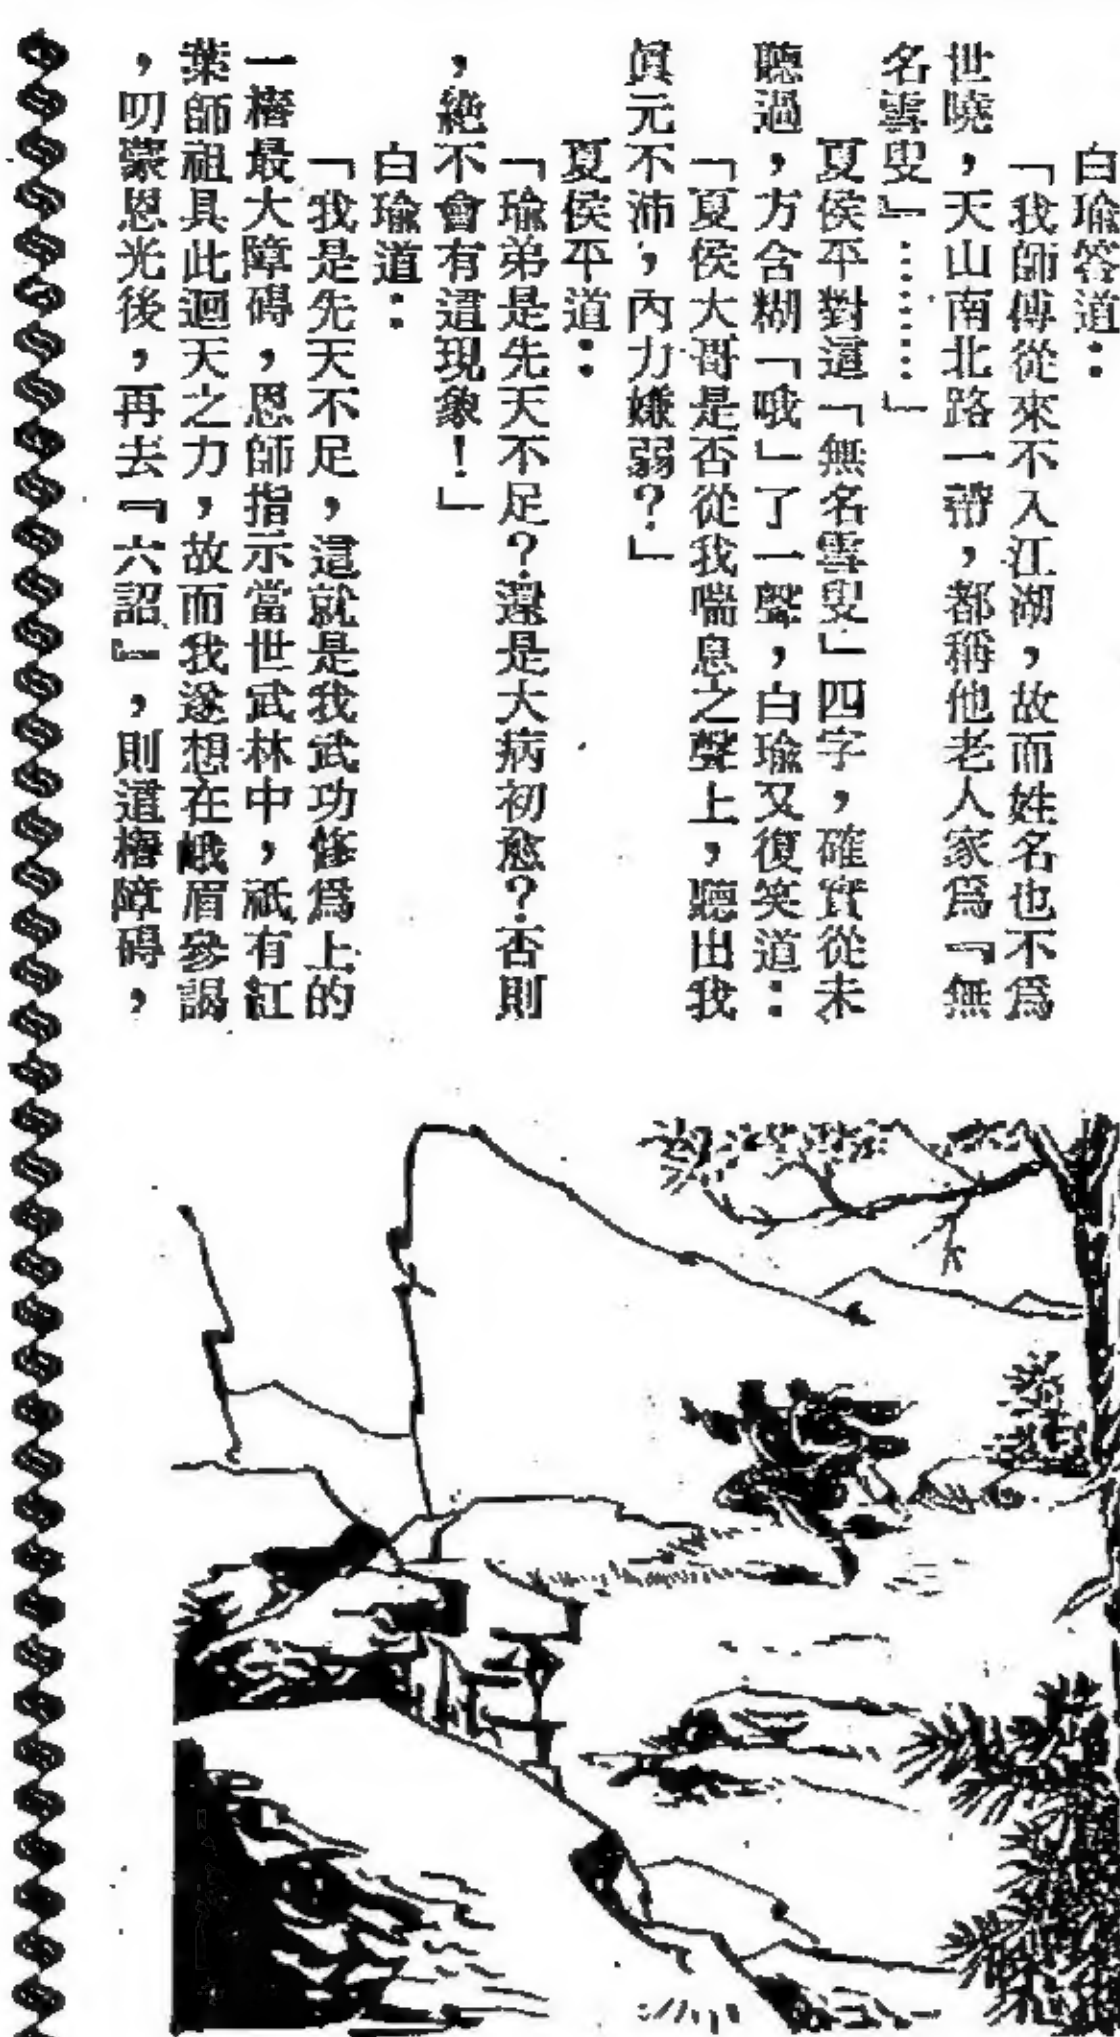 白瑜答道：
「我師傅從來不入江湖，故而姓名也不爲
世曉，天山南北路一帶，都稱他老人家爲『無
名雲叟』………」
夏侯平對這「無名雲叟」四字，確實從未
聽過，方含糊「哦」了一聲，白瑜又復笑道：
「夏侯大哥是否從我喘息之聲上，聽出我
眞元不沛，內力嫌弱？」
夏侯平道：
「瑜弟是先天不足？還是大病初愈？否則
，絕不會有這現象！」
白瑜道：
「我是先天不足，這就是我武功修爲上的
一樁最大障碍，恩師指示當世武林中，祇有紅
葉師祖具此迴天之力，故而我遂想在峨眉參謁
，叨蒙恩光後，再去『六詔』，則這樁障碍，